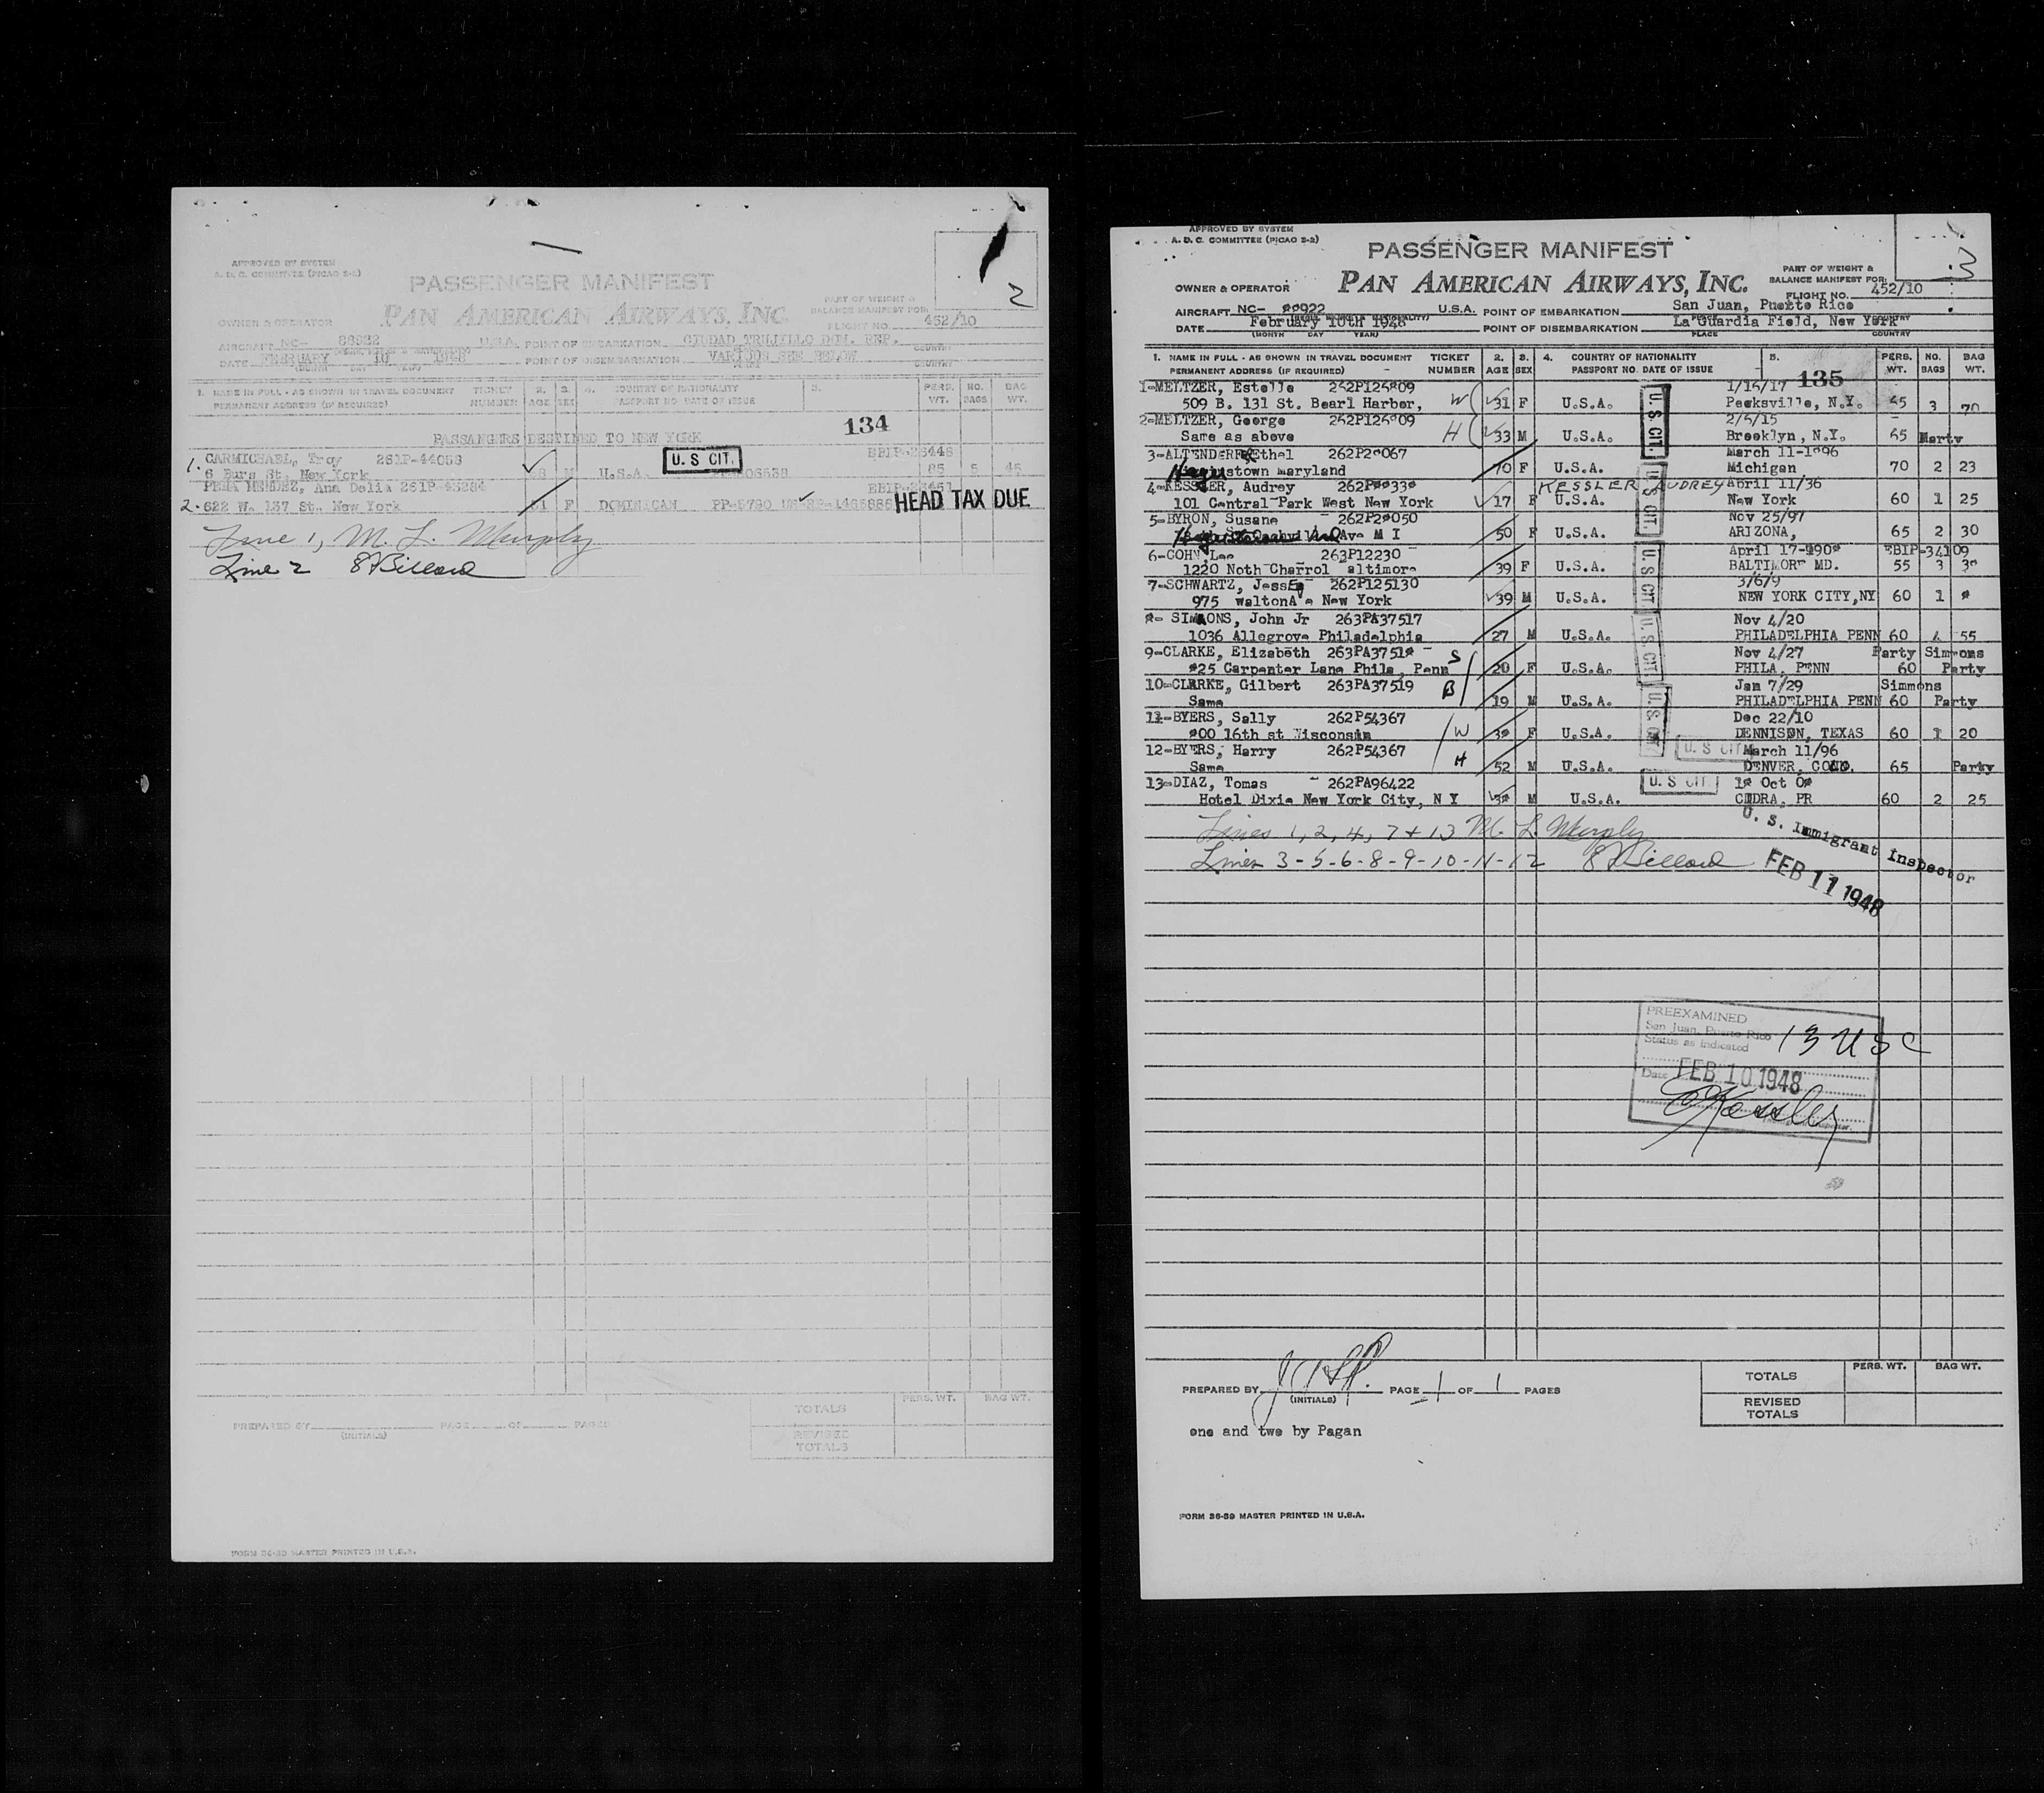 APPROVED BY SYSTEM
A. D. C. COMMITTEE (PICAO S-2)
2
PASSENGER MANIFEST
PAN AMERICAN AIRWAYS, INC.
PART OF WEIGHT &
BALANCE MANIFEST FOR:
OWNER & OPERATOR
FLIGHT NO. 452/10
AIRCRAFT NC- 88922 U.S.A. POINT OF EMBARKATION CIUDAD TRUJILLO DOM. REP.
COUNTRY
DATE FEBRUARY 10 1948 POINT OF DISEMBARKATION VARIOUS SEE BELOW
(MONTH DAY YEAR) PLACE COUNTRY
1. NAME IN FULL - AS SHOWN IN TRAVEL DOCUMENT TICKET 2. 3. 4. COUNTRY OF NATIONALITY 5. PERS. NO. BAG
PERMANENT ADDRESS (IF REQUIRED) NUMBER AGE SEX PASSPORT NO. DATE OF ISSUE WT. BAGS WT.
134
PASSANGERS DESTINED TO NEW YORK
1. CARMICHAEL, Troy 261P-44058
U. S CIT.
6 Burs St. New York M U.S.A. 85 5 46
PENA MENDEZ, Ana Delia 261P-45284
2. 622 W. 137 St. New York F DOMINICAN PP-5730 HEAD TAX DUE
Line 1, M. L. Murphy
Line 2 Billard
PREPARED BY PAGE OF PAGES
(INITIALS)
PERS. WT. BAG WT.
TOTALS
REVISED
TOTALS
FORM 36-39 MASTER PRINTED IN U.S.A.
APPROVED BY SYSTEM
A. D. C. COMMITTEE (PICAO S-2)
3
PASSENGER MANIFEST
PAN AMERICAN AIRWAYS, INC.
PART OF WEIGHT &
BALANCE MANIFEST FOR:
OWNER & OPERATOR
FLIGHT NO. 452/10
AIRCRAFT NC- 88922 U.S.A. POINT OF EMBARKATION San Juan, Puerto Rico
DATE February 10th 1948 POINT OF DISEMBARKATION La Guardia Field, New York
(MONTH DAY YEAR) PLACE COUNTRY
1. NAME IN FULL - AS SHOWN IN TRAVEL DOCUMENT TICKET 2. 3. 4. COUNTRY OF NATIONALITY 5. PERS. NO. BAG
PERMANENT ADDRESS (IF REQUIRED) NUMBER AGE SEX PASSPORT NO. DATE OF ISSUE WT. BAGS WT.
135
1-MELTZER, Estelle 262P125809 1/15/17
509 B. 131 St. Bearl Harbor, W 31 F U.S.A. Peeksville, N.Y. 55 3 70
2-MELTZER, George 262P125809 2/5/15
Same as above H 33 M U.S.A. Brooklyn, N.Y. 65 Party
3-ALTENDERF Ethel 262P28067 March 11-1896
Hagerstown Maryland 70 F U.S.A. Michigan 70 2 23
4-KESSLER, Audrey KESSLER AUDREY April 11/36
101 Central Park West New York 17 F U.S.A. New York 60 1 25
5-BYRON, Susane 262P28050 Nov 25/97
Ave M I 50 F U.S.A. ARIZONA, 65 2 30
6-COHN, Lee 263P12230 April 17-1908 EBIP-34109
1220 Noth Charrol altimore 39 F U.S.A. BALTIMORE MD. 55 3 38
7-SCHWARTZ, Jesse 262P125130 3/6/9
975 waltonAve New York 39 M U.S.A. NEW YORK CITY, NY 60 1 8
8- SIMMONS, John Jr 263PA37517 Nov 4/20
1036 Allegrove Philadelphia 27 M U.S.A. PHILADELPHIA PENN 60 4 55
9-CLARKE, Elizabeth 263PA37518 S Nov 4/27 Party Simmons
825 Carpenter Lane Phila, Penn 20 F U.S.A. PHILA, PENN 60 Party
10-CLARKE, Gilbert 263PA37519 B Jan 7/29 Simmons
Same 19 M U.S.A. PHILADELPHIA PENN 60 Party
11-BYERS, Sally 262P54367 Dec 22/10
800 16th st Wisconsin W 38 F U.S.A. DENNISON, TEXAS 60 1 20
12-BYERS, Harry 262P54367 H U. S CIT. March 11/96
Same 52 M U.S.A. DENVER, COLO. 65 Party
13-DIAZ, Tomas 262PA96422 U. S CIT. 18 Oct 08
Hotel Dixie New York City, N Y M U.S.A. CIDRA, PR 60 2 25
U. S CIT.
U. S. CIT.
U. S CIT.
U. S. CIT.
U. S CIT
Lines 1, 2, 4, 7 + 13 M. L. Murphy
Lines 3-5-6-8-9-10-11-12 Billard
U. S. Immigrant Inspector
FEB 11 1948
PREEXAMINED
San Juan, Puerto Rico
Status as indicated
13 USC
Date FEB 10 1948
Kessler
PREPARED BY PAGE 1 OF 1 PAGES
(INITIALS)
PERS. WT. BAG WT.
TOTALS
REVISED
TOTALS
one and two by Pagan
FORM 36-39 MASTER PRINTED IN U.S.A.